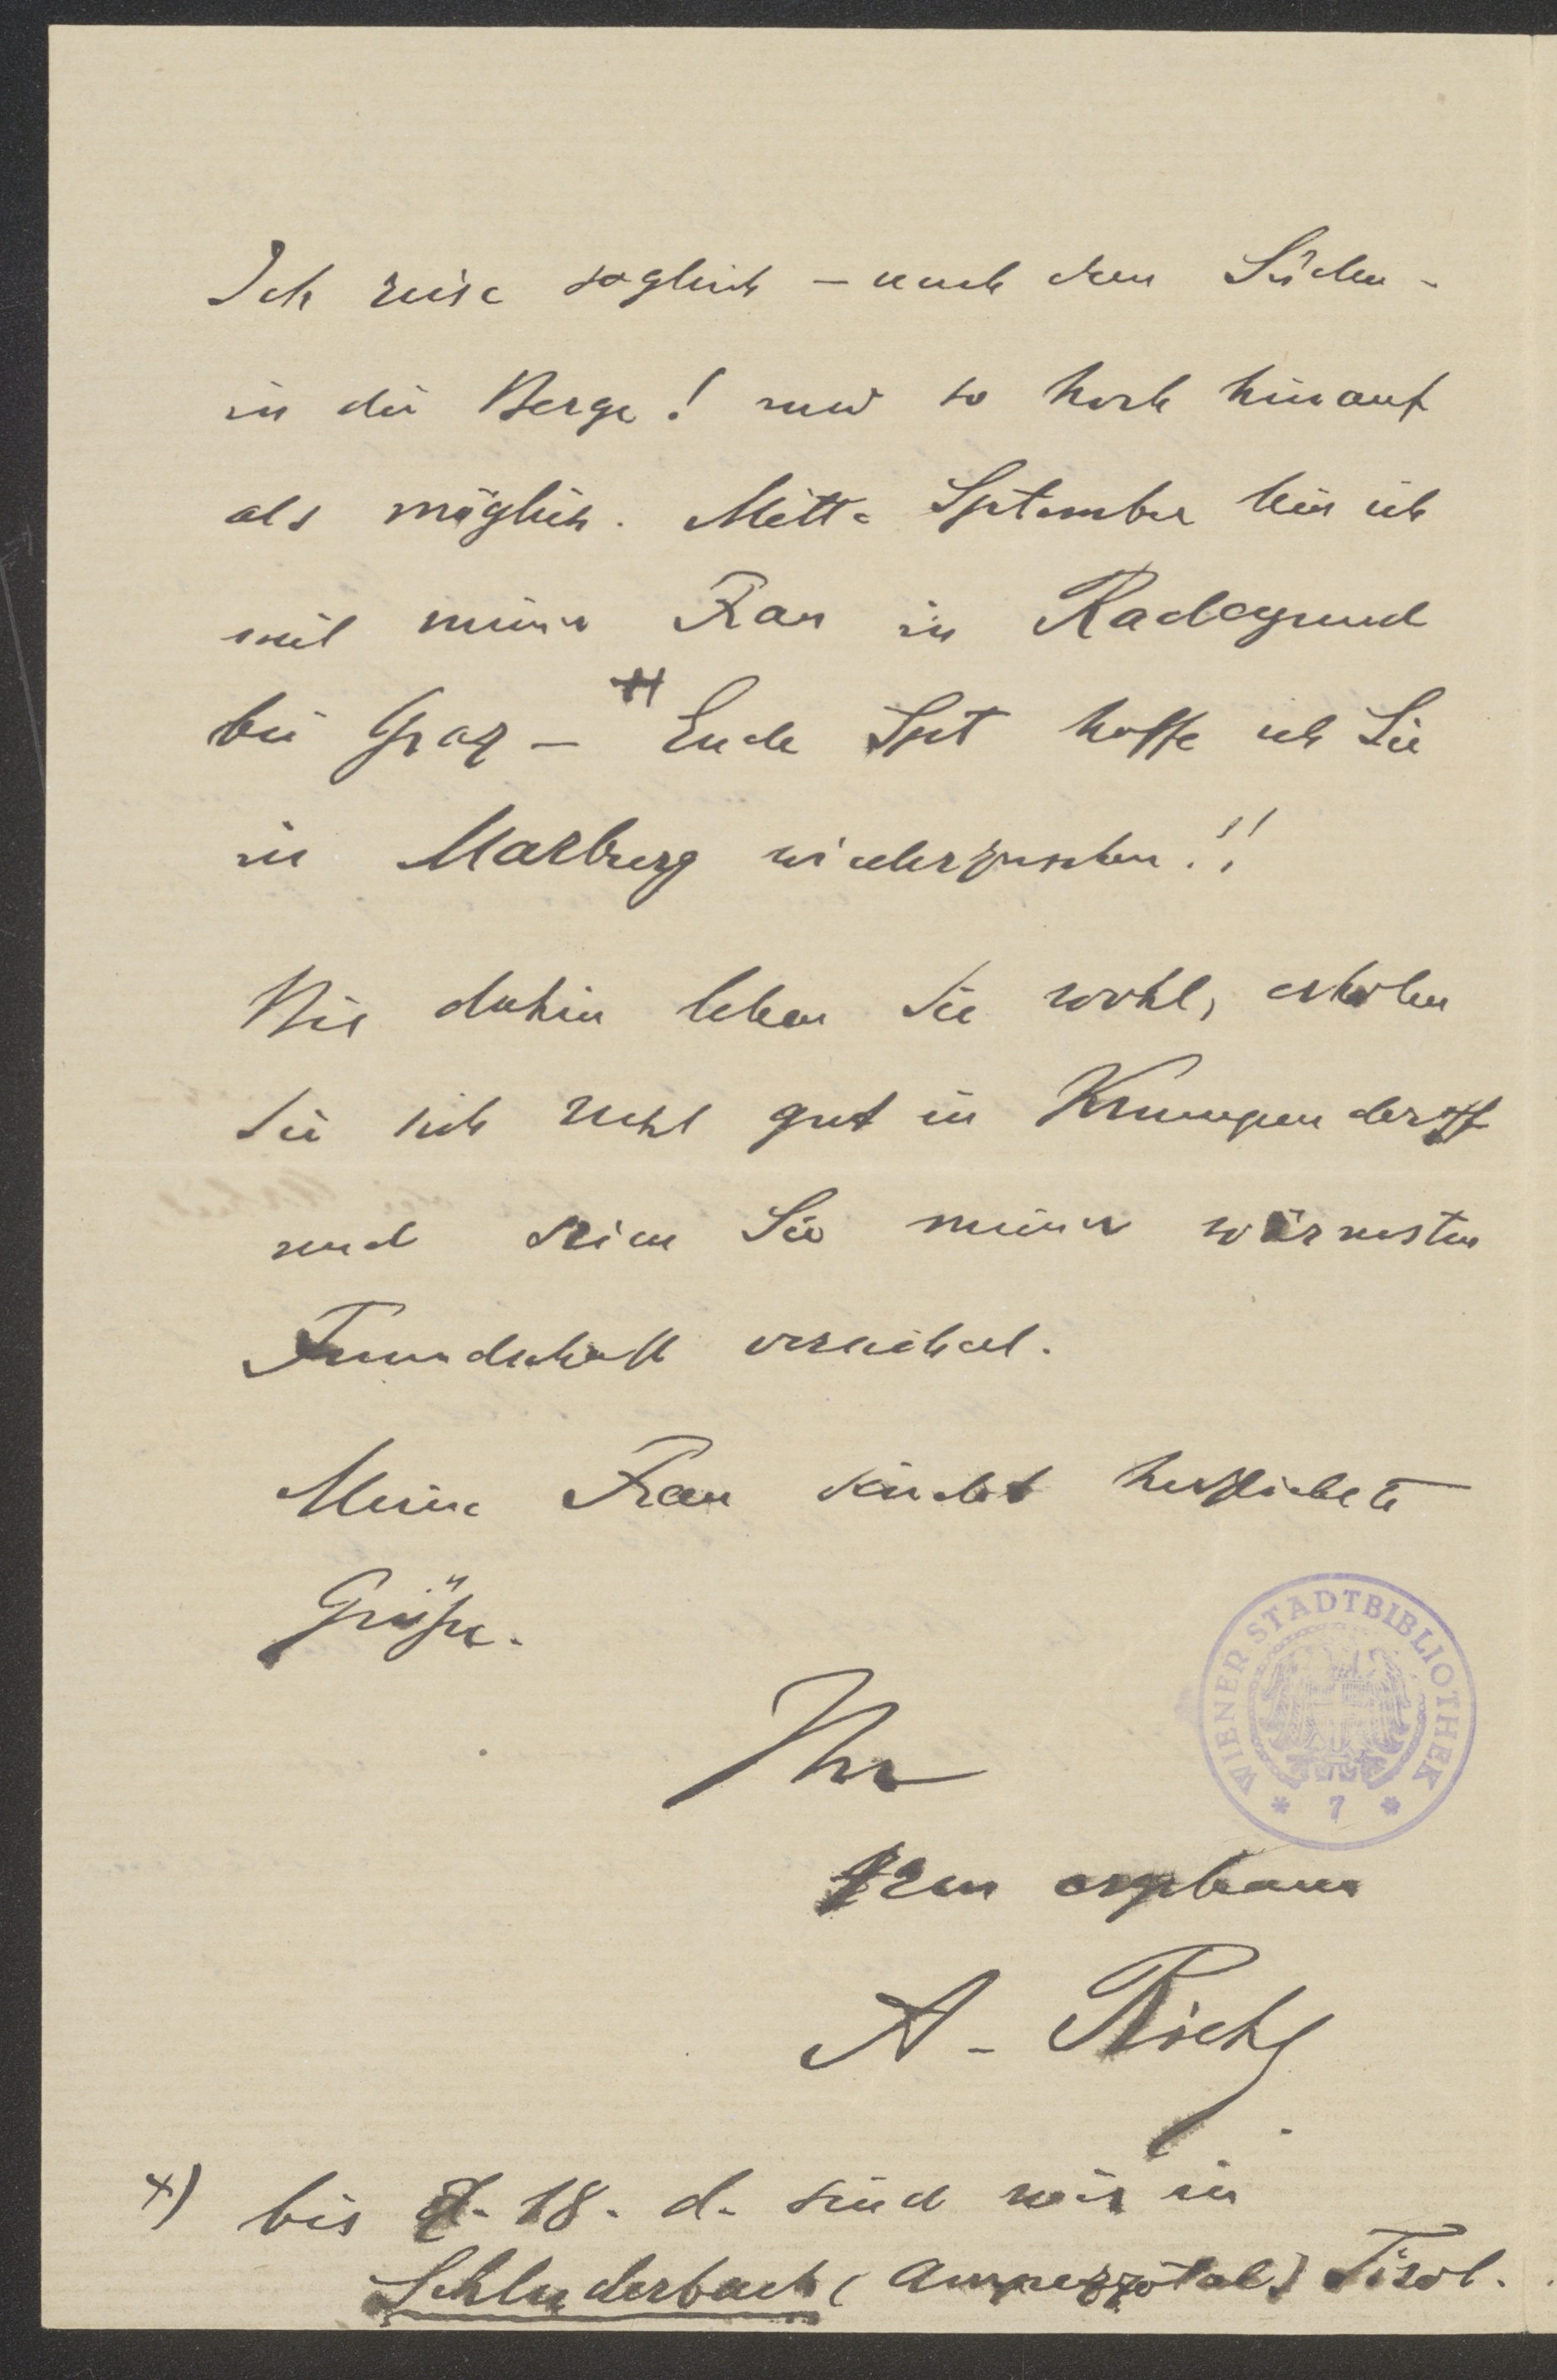 Ich reise sogleich – nach dem Süden –
in die Berge! und so hoch hinauf
als möglich. Mitte September bin ich
mit meiner Frau in Radegund
bei Graz – +) Ende Sept hoffe ich Sie
in Marburg wiederzusehen!!
Bis dahin leben Sie wohl, erholen
Sie sich recht gut in Krumpendorff
und seien Sie meiner wärmsten
Freundschaft versichert.
Meine Frau sendet herzlichste
Grüße.
Ihr
treu ergebener
A. Riehl
WIENER STADTBIBLIOTHEK
* 7 *
+) bis z. 18. d. sind wir in
Schluderbach (Ampezzotal) Tirol.